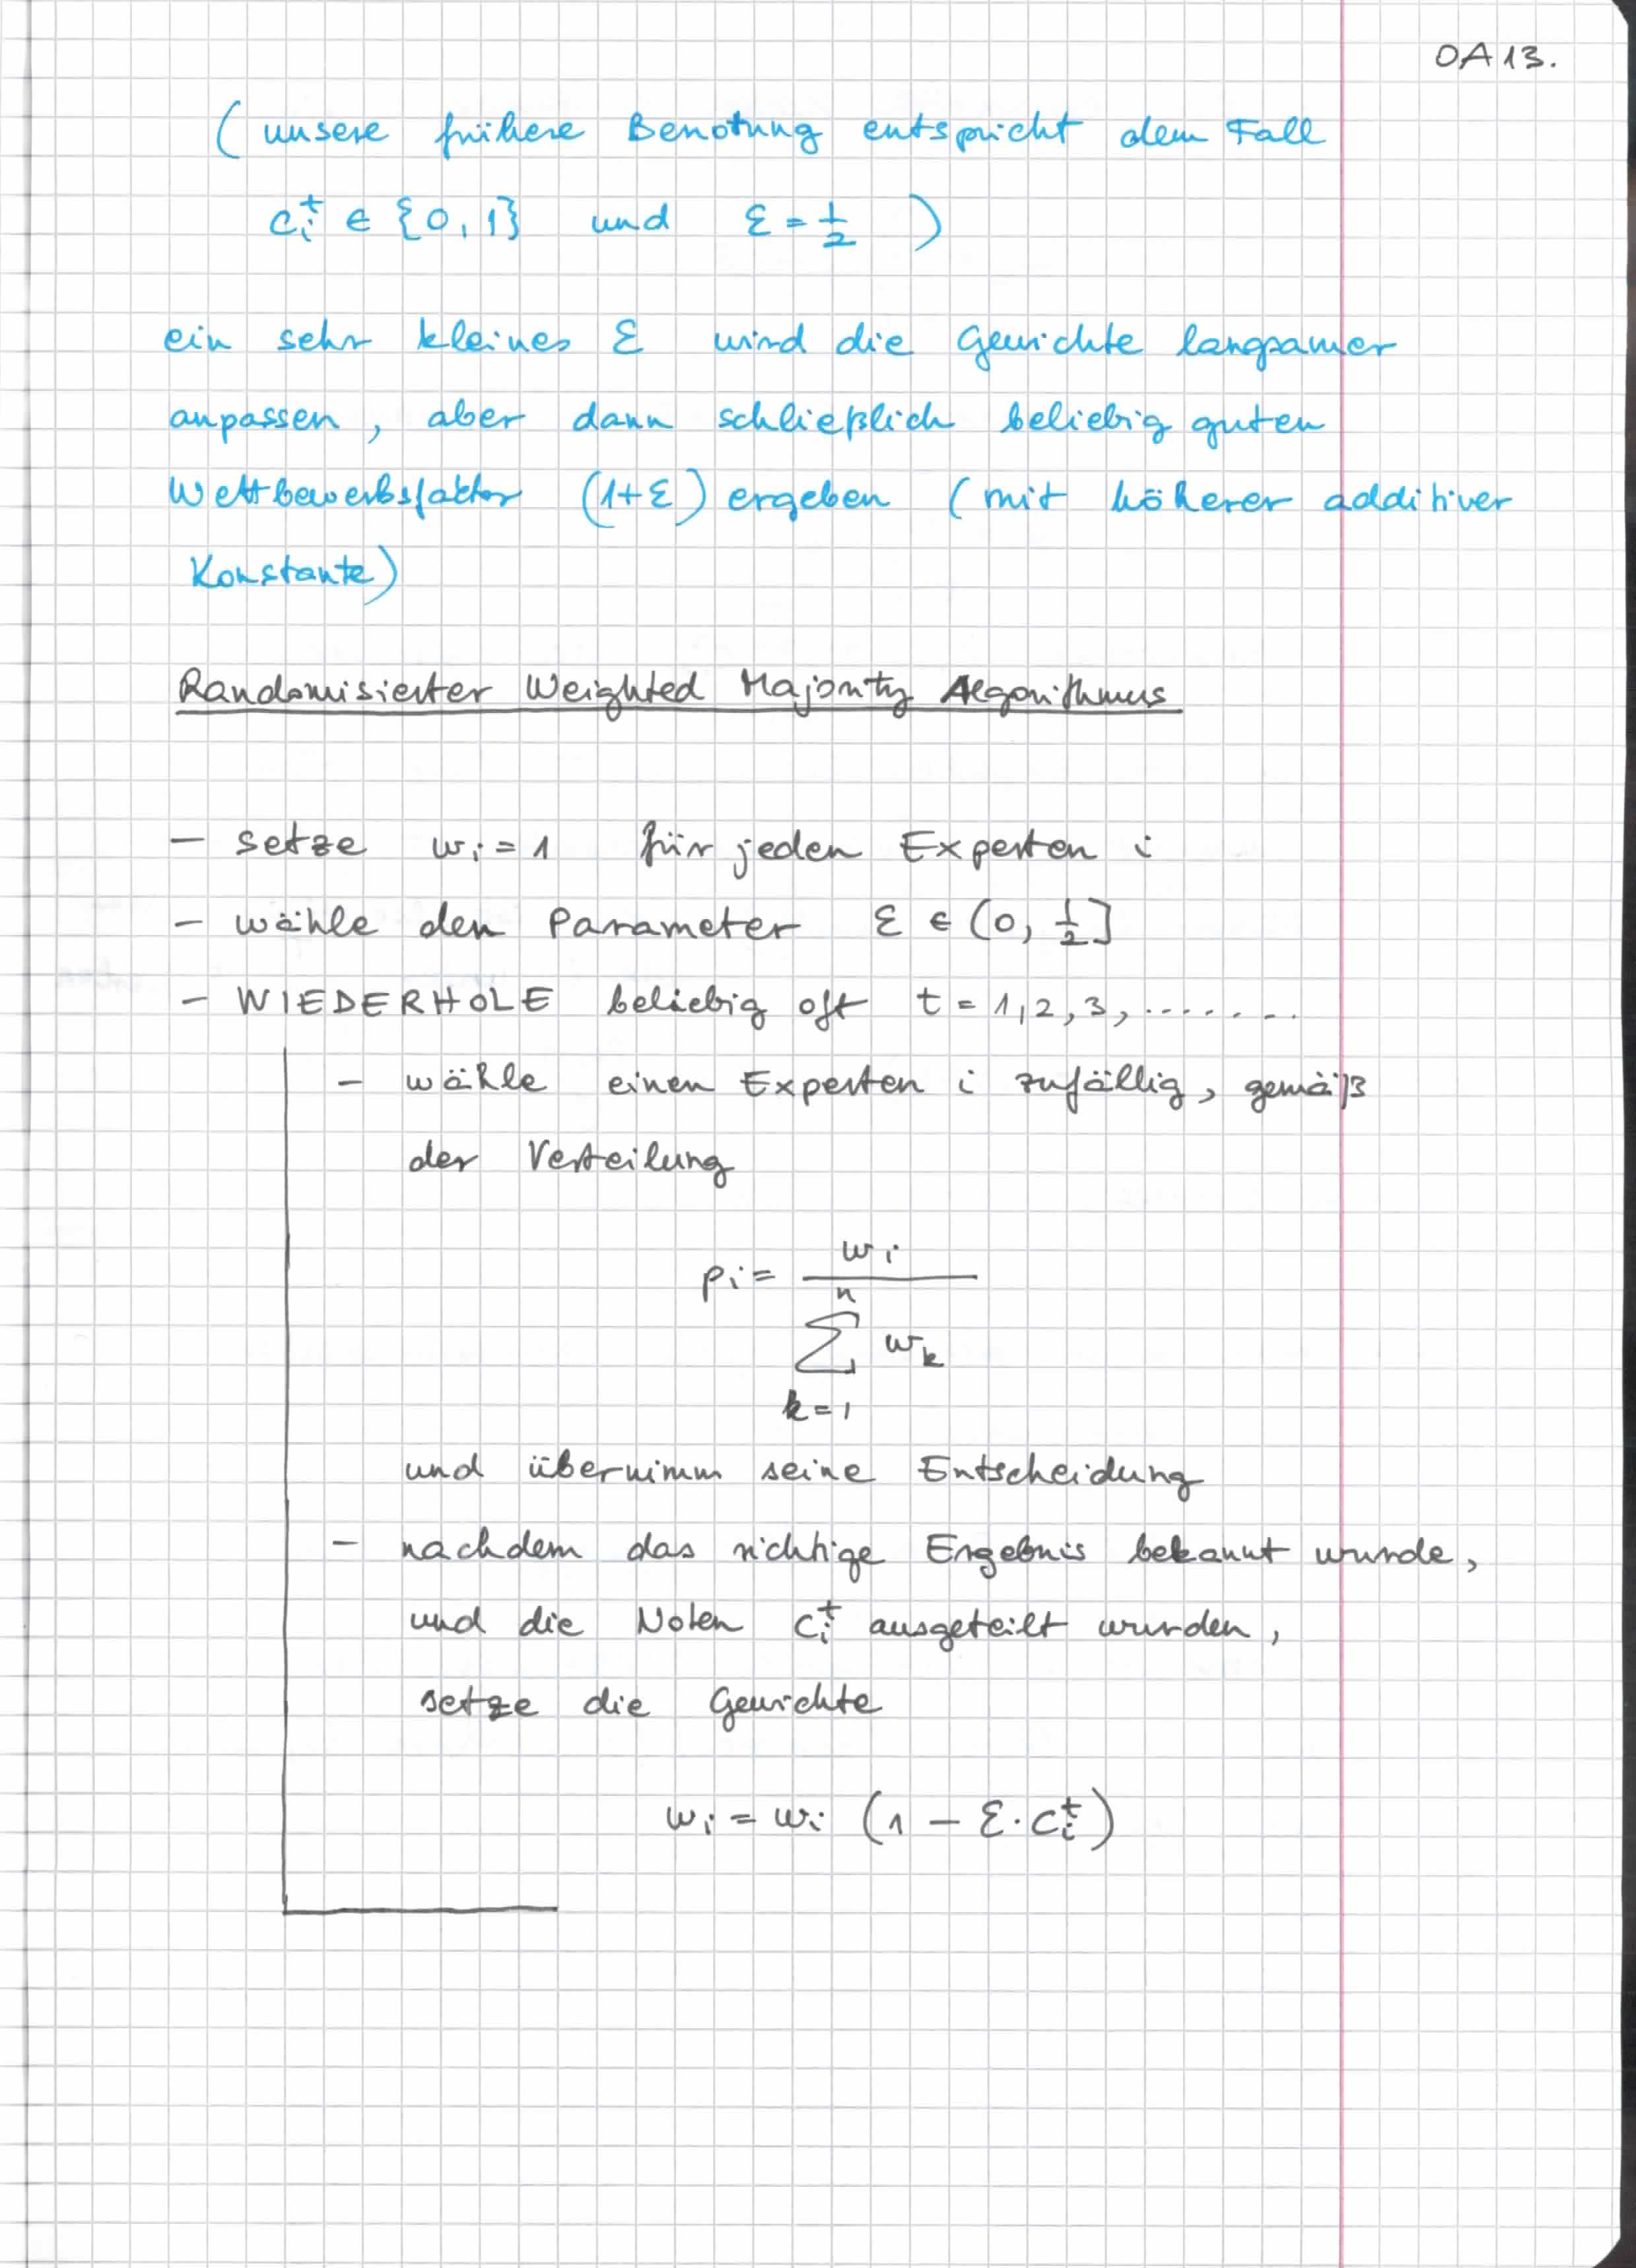 OA13.
(unsere frühere Benotung entspricht dem Fall
c_i^t ∈ {0,1} und ε = 1/2 )
ein sehr kleines ε wird die Gewichte langsamer
anpassen, aber dann schließlich beliebig guten
Wettbewerbsfaktor (1+ε) ergeben (mit höherer additiver
Konstante)
Randomisierter Weighted Majority Algorithmus
- setze w_i = 1 für jeden Experten i
- wähle den Parameter ε ∈ (0, 1/2]
- WIEDERHOLE beliebig oft t = 1,2,3, .......
- wähle einen Experten i zufällig, gemäß
der Verteilung
p_i = w_i / ∑_{k=1}^{n} w_k
und übernimm seine Entscheidung
- nachdem das richtige Ergebnis bekannt wurde,
und die Noten c_i^t ausgeteilt wurden,
setze die Gewichte
w_i = w_i (1 - ε · c_i^t)